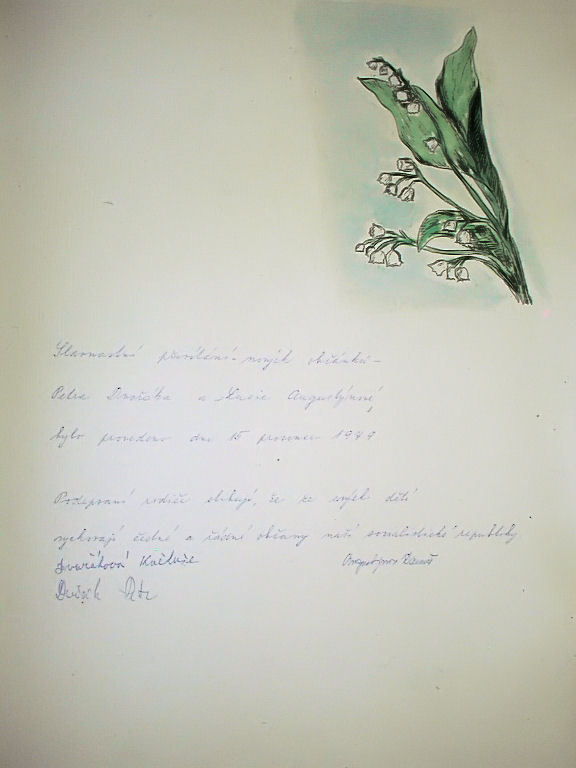 Slavnostní přivítání nových občánků –
Petra Dvořáka a Lucie Augustýnové
bylo provedeno dne 15 prosince 19
Podepsaní rodiče slibují, že ze svých dětí
vychovají čestné a řádné občany naší socialistické republiky
Dvořáková Květuše
Dvořák Petr